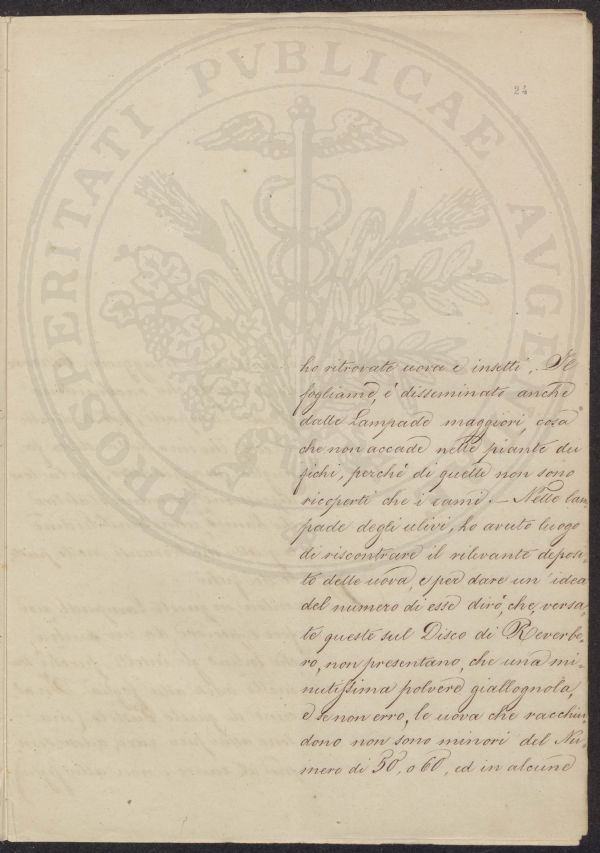 PROSPERITATI PVBLICAE AVGE
24
ho ritrovato uova e insetti. Il
fogliame, è disseminato anche
dalle Lampade maggiori, cosa
che non accade nelle piante dei
fichi, perché di quelle non sono
ricoperti che i rami. – Nelle lam-
pade degli ulivi, ho avuto luogo
di riscontrare il rilevante deposi-
to delle uova, e per dare un' idea
del numero di esse dirò, che, versa-
te queste sul Disco di Reverbe-
ro, non presentano, che una mi-
nutissima polvere giallognola,
e se non erro, le uova che racchiu-
dono non sono minori del Nu-
mero di 50, o 60, ed in alcune